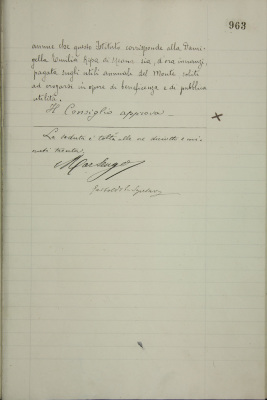 963
annue che questo Istituto corrisponde alla Dami-
gella Emilia Ripa di Meana sia, d'ora innanzi,
pagata sugli utili annuali del Monte soliti
ad erogarsi in opere di beneficenza e di pubblica
utilità.
Il Consiglio approva
La seduta è tolta alle ore diciotto e mi-
nuti trenta.